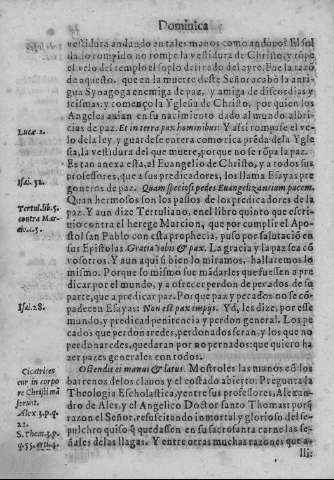 Dominica
vestidura andando en tales manos como anduuo? El sol
dado rompido no rompe la vestidura de Christo, y rōpe
el velo del templo el soplo delicado del ayre. Fue la razō
de aquesto, que en la muerte deste Señor acabò la anti-
gua Synagoga enemiga de paz, y amiga de discordias y
scismas: y començo la Yglesia de Christo, por quien los
Angeles auian en su nacimiento dado al mundo albri-
Lucæ. 2.
cias de paz. Et in terra pax hominibus: Y assi rompase el ve-
lo de la ley, y guardese entera como rica prēda dela Ygle
sia, la vestidura del que muere, porque no se rōpa la paz.
Es tan anexa esta, al Euangelio de Christo, y a todos sus
professores, que a sus predicadores, los llama Esayas pre
Isai. 52.
goneros de paz. Quam speciosi pedes Euangelizantium pacem.
Quan hermosos son los passos de los predicadores de la
Tertul. lib. 5.
contra Mar-
paz. Y aun dize Tertuliano, en el libro quinto que escri-
uio contra el herege Marcion, que por cumplir el Apos
tol san Pablo con esta prophecia, puso por salutació en
sus Epistolas Gratia vobis & pax. La gracia y la paz sea cō
vosotros. Y aun aqui si bien lo miramos, hallaremos lo
mismo. Porque lo mismo fue mādarles que fuessen a pre
dicar por el mundo, y a ofrecer perdon de peccados de su
parte, que a predicar paz. Porque paz y pecados no se cō-
Isai. 28.
padecen Esayas: Non est pax impijs. Yd, les dize, por este
mundo, y predicad penitencia y perdon general. Los pe
cados que perdonaredes, perdonados seran, y los que no
perdonaredes, quedaran por no pernados: que quiero ha
zer pazes generales con todos.
Cicatrices
cur in corpo
re Christi mā
serunt.
Alex. 3. p. q.
22.
S. Thom. 3. p.
Ostendit ei manus & latus. Mostroles las manos cō los
barrenos de los clauos y el costado abierto. Pregunta la
Theologia Escholastica, y entre sus professores, Alexan-
dro de Ales, y el Angelico Doctor santo Thomas: porq̄
razon el Señor, resuscitando inmortal y glorioso del se-
pulchro quiso q̄ quedassen en su sacrosanta carne las se-
ñales de las llagas. Y entre otras muchas razones que a-
lli: